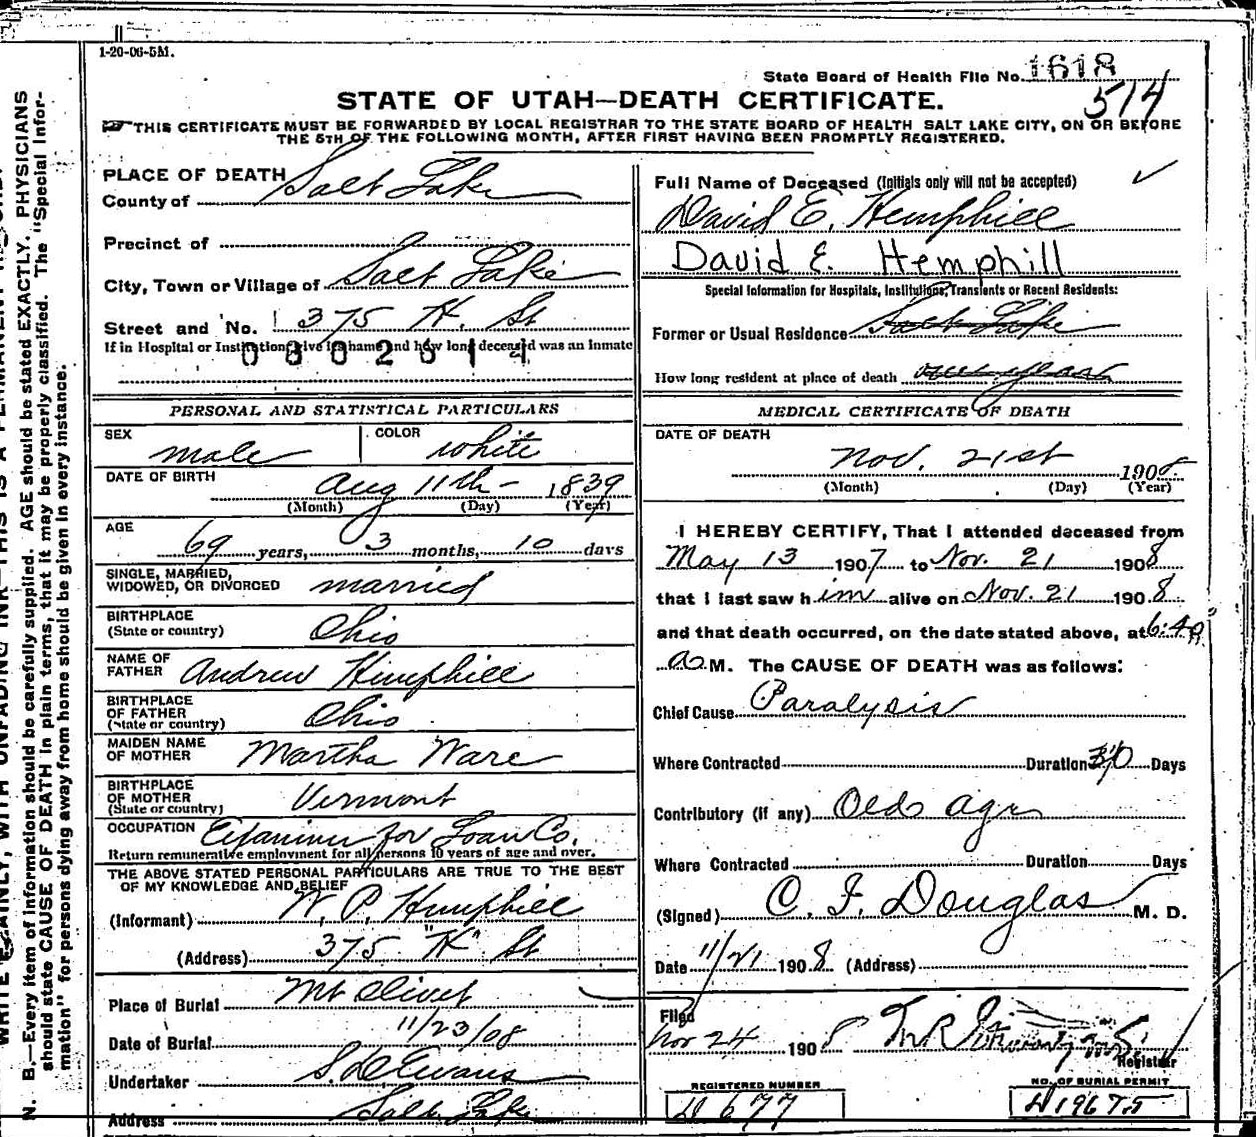 1-20-06-5M.
State Board of Health File No. 1618
514
STATE OF UTAH—DEATH CERTIFICATE.
THIS CERTIFICATE MUST BE FORWARDED BY LOCAL REGISTRAR TO THE STATE BOARD OF HEALTH SALT LAKE CITY, ON OR BEFORE
THE 5TH OF THE FOLLOWING MONTH, AFTER FIRST HAVING BEEN PROMPTLY REGISTERED.
PLACE OF DEATH
County of Salt Lake
Precinct of
City, Town or Village of Salt Lake
Street and No. 375 K. St
If in Hospital or Institution, give its name and how long deceased was an inmate
PERSONAL AND STATISTICAL PARTICULARS
SEX male COLOR white
DATE OF BIRTH Aug 11th - 1839
(Month) (Day) (Year)
AGE 69 years, 3 months, 10 days
SINGLE, MARRIED,
WIDOWED, OR DIVORCED married
BIRTHPLACE
(State or country) Ohio
NAME OF
FATHER Andrew Hemphill
BIRTHPLACE
OF FATHER
(State or country) Ohio
MAIDEN NAME
OF MOTHER Martha Ware
BIRTHPLACE
OF MOTHER
(State or country) Vermont
OCCUPATION Examiner for Loan Co.
Return remunerative employment for all persons 10 years of age and over.
THE ABOVE STATED PERSONAL PARTICULARS ARE TRUE TO THE BEST
OF MY KNOWLEDGE AND BELIEF
(Informant) W. P. Hemphill
(Address) 375 "K" St
Place of Burial Mt Olivet
Date of Burial 11/23/08
Undertaker S. D. Evans
Address Salt Lake
Full Name of Deceased (Initials only will not be accepted)
David E. Hemphill
David E. Hemphill
Special Information for Hospitals, Institutions, Transients or Recent Residents:
Former or Usual Residence Salt Lake
How long resident at place of death
MEDICAL CERTIFICATE OF DEATH
DATE OF DEATH
Nov. 21st 1908
(Month) (Day) (Year)
I HEREBY CERTIFY, That I attended deceased from
May 13 1907 to Nov. 21 1908
that I last saw him alive on Nov. 21 1908
and that death occurred, on the date stated above, at
a M. The CAUSE OF DEATH was as follows:
Chief Cause Paralysis
Where Contracted Duration Days
Contributory (if any) Old age
Where Contracted Duration Days
(Signed) C. F. Douglas M. D.
Date 11/21 1908 (Address)
Filed
Nov 24 1908
Registrar
REGISTERED NUMBER
D 677
NO. OF BURIAL PERMIT
D 19675
N. B.—Every item of information should be carefully supplied. AGE should be stated EXACTLY. PHYSICIANS
should state CAUSE OF DEATH in plain terms, that it may be properly classified. The "Special Infor-
mation" for persons dying away from home should be given in every instance.